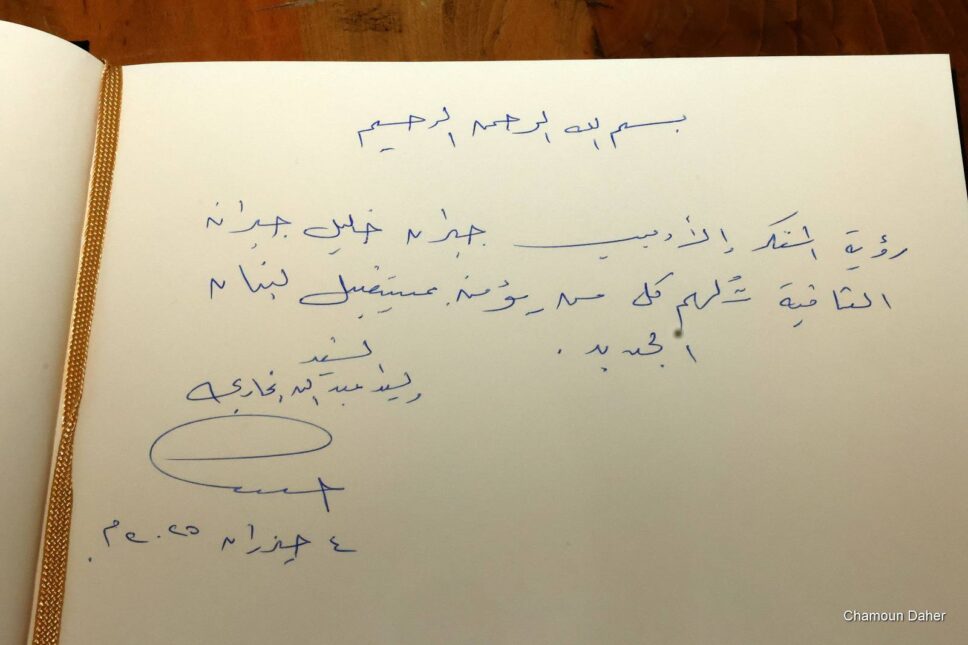 بسم الله الرحمن الرحيم
رؤية المفكر والأديب جبران خليل جبران
الثاقبة تُلهم كل من يؤمن بمستقبل لبنان
الجديد .
السفير
وليد عبدالله بخاري
٤ حزيران ٢٠٢٥م.
Chamoun Daher